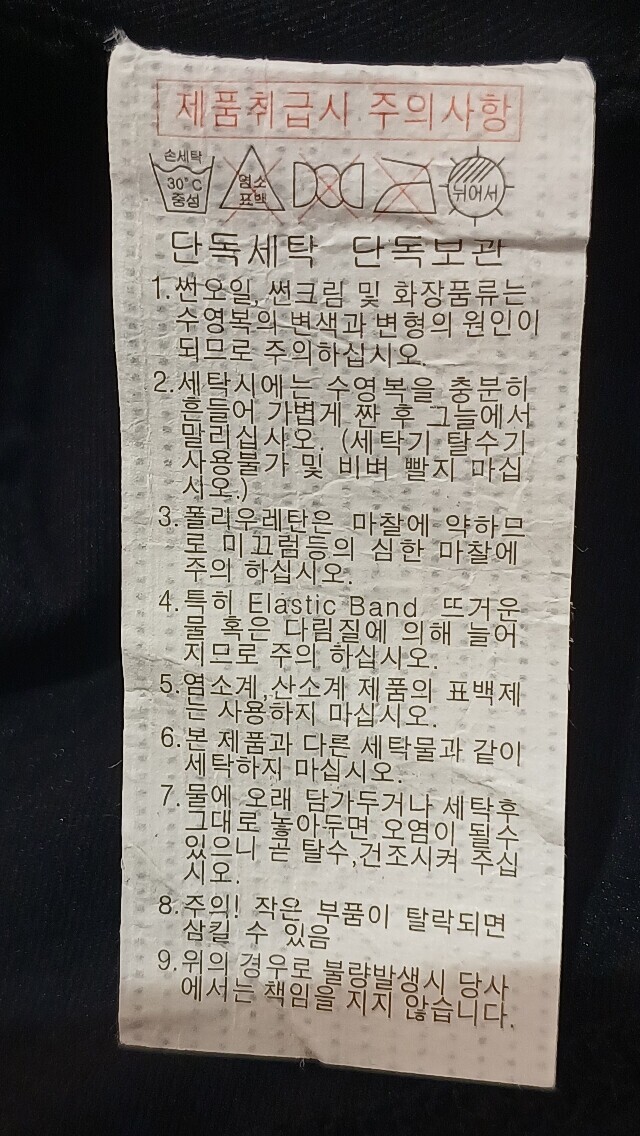 제품취급시 주의사항
손세탁
30°C
중성
염소
표백
뉘어서
단독세탁 단독보관
1.썬오일,썬크림 및 화장품류는
수영복의 변색과 변형의 원인이
되므로 주의하십시오.
2.세탁시에는 수영복을 충분히
흔들어 가볍게 짠 후 그늘에서
말리십시오. (세탁기 탈수기
사용불가 및 비벼 빨지 마십
시오.)
3.폴리우레탄은 마찰에 약하므
로 미끄럼등의 심한 마찰에
주의 하십시오.
4.특히 Elastic Band 뜨거운
물 혹은 다림질에 의해 늘어
지므로 주의 하십시오.
5.염소계,산소계 제품의 표백제
는 사용하지 마십시오.
6.본 제품과 다른 세탁물과 같이
세탁하지 마십시오.
7.물에 오래 담가두거나 세탁후
그대로 놓아두면 오염이 될수
있으니 곧 탈수,건조시켜 주십
시오.
8.주의! 작은 부품이 탈락되면
삼킬 수 있음
9.위의 경우로 불량발생시 당사
에서는 책임을 지지 않습니다.